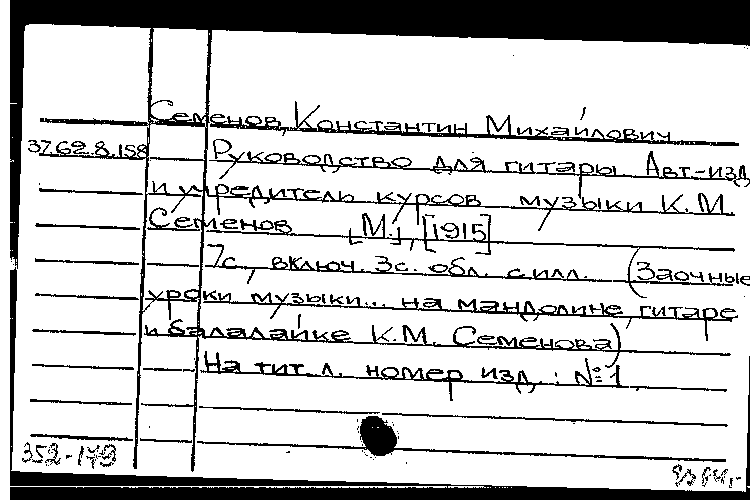 Семенов, Константин Михайлович
37.62.8.158 Руководство для гитары. Авт-изд.
и учредитель курсов музыки К.М.
Семенов [М.], [1915]
7с., включ. 3с. обл. с илл. (Заочные
уроки музыки... на мандолине, гитаре
и балалайке К.М. Семенова)
На тит. л. номер изд.: №1.
352-179